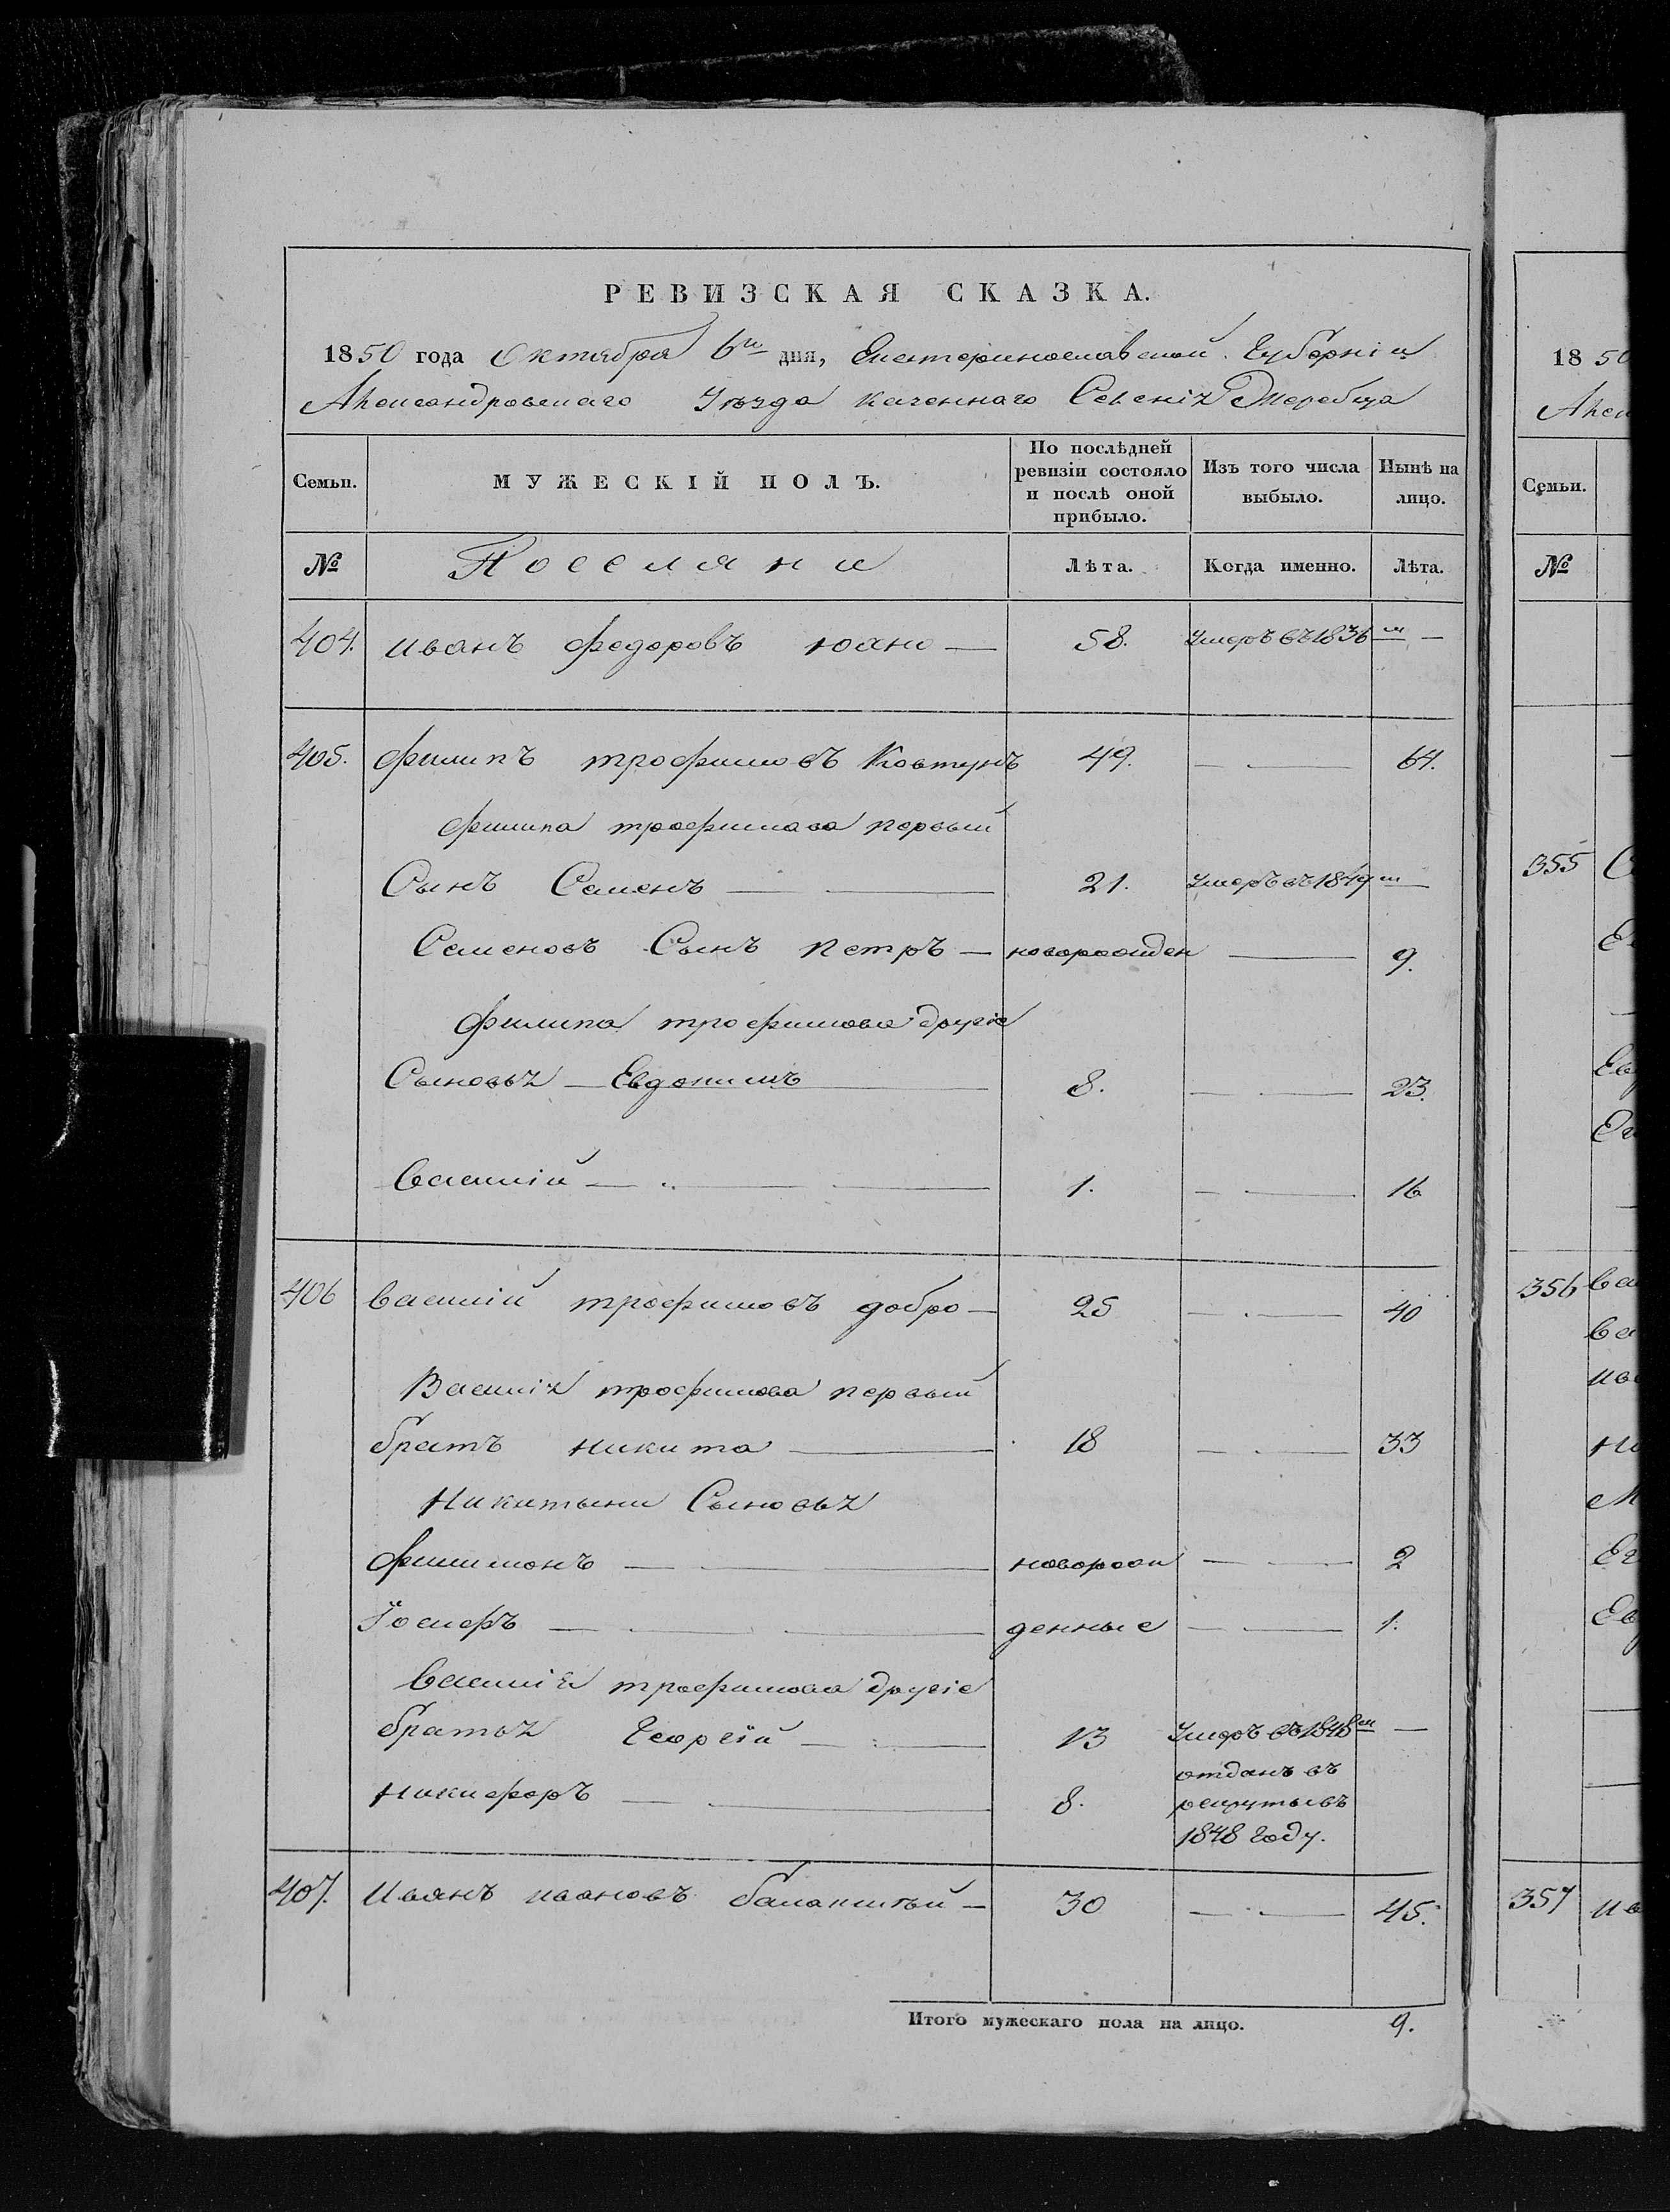 РЕВИЗСКАЯ СКАЗКА.
1850 года Октября 6го дня, Екатеринославской Губерніи
Александровскаго Уезда казеннаго Селенія Жеребца
Семьи.
МУЖЕСКІЙ ПОЛЪ.
По послѣдней ревизіи состояло и послѣ оной прибыло.
Изъ того числа выбыло.
Нынѣ на лицо.
№
Поселяни
Лѣта.
Когда именно.
Лѣта.
404. иванъ федоровъ — 58. Умеръ въ 1836 м —
405. филипъ трофимовъ Ковтунъ 49. — 64.
филипа трофимова первый
Сынъ Семенъ — 21. Умеръ въ 1849 м —
Семеновъ Сынъ петръ — новорожден — 9.
филипа трофимова другіе
Сыновья — Евдокимъ — 8. — 23.
василій — 1. — 16
406 василій трофимовъ добро — 25 — 40
Василія трофимова первый
братъ никита — 18 — 33
Никитыни Сыновья
филимонъ — новорож — 2
Іосифъ — денные — 1.
василія трофимова другіе
братья Георгій — 13 Умеръ въ 1848 м —
никифоръ — 8. отданъ въ
рекруты въ
1848 году.
407. Иванъ ивановъ — 30 — 45.
Итого мужескаго пола на лицо. 9.
1850
Алек
Семьи.
№
355
356
357